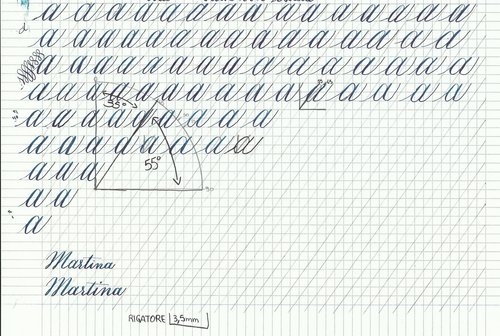 a a a a a a a a a a a a a a a
a a a a a a a a a a a a a a
a a a a a a a a a a a a a a a
a a a a a a a a a a a a a a a
35°
a a a a a a a a a
a a a a a a a a
55°
a a a
a a
a
Martina
Martina
RIGATORE 3,5mm